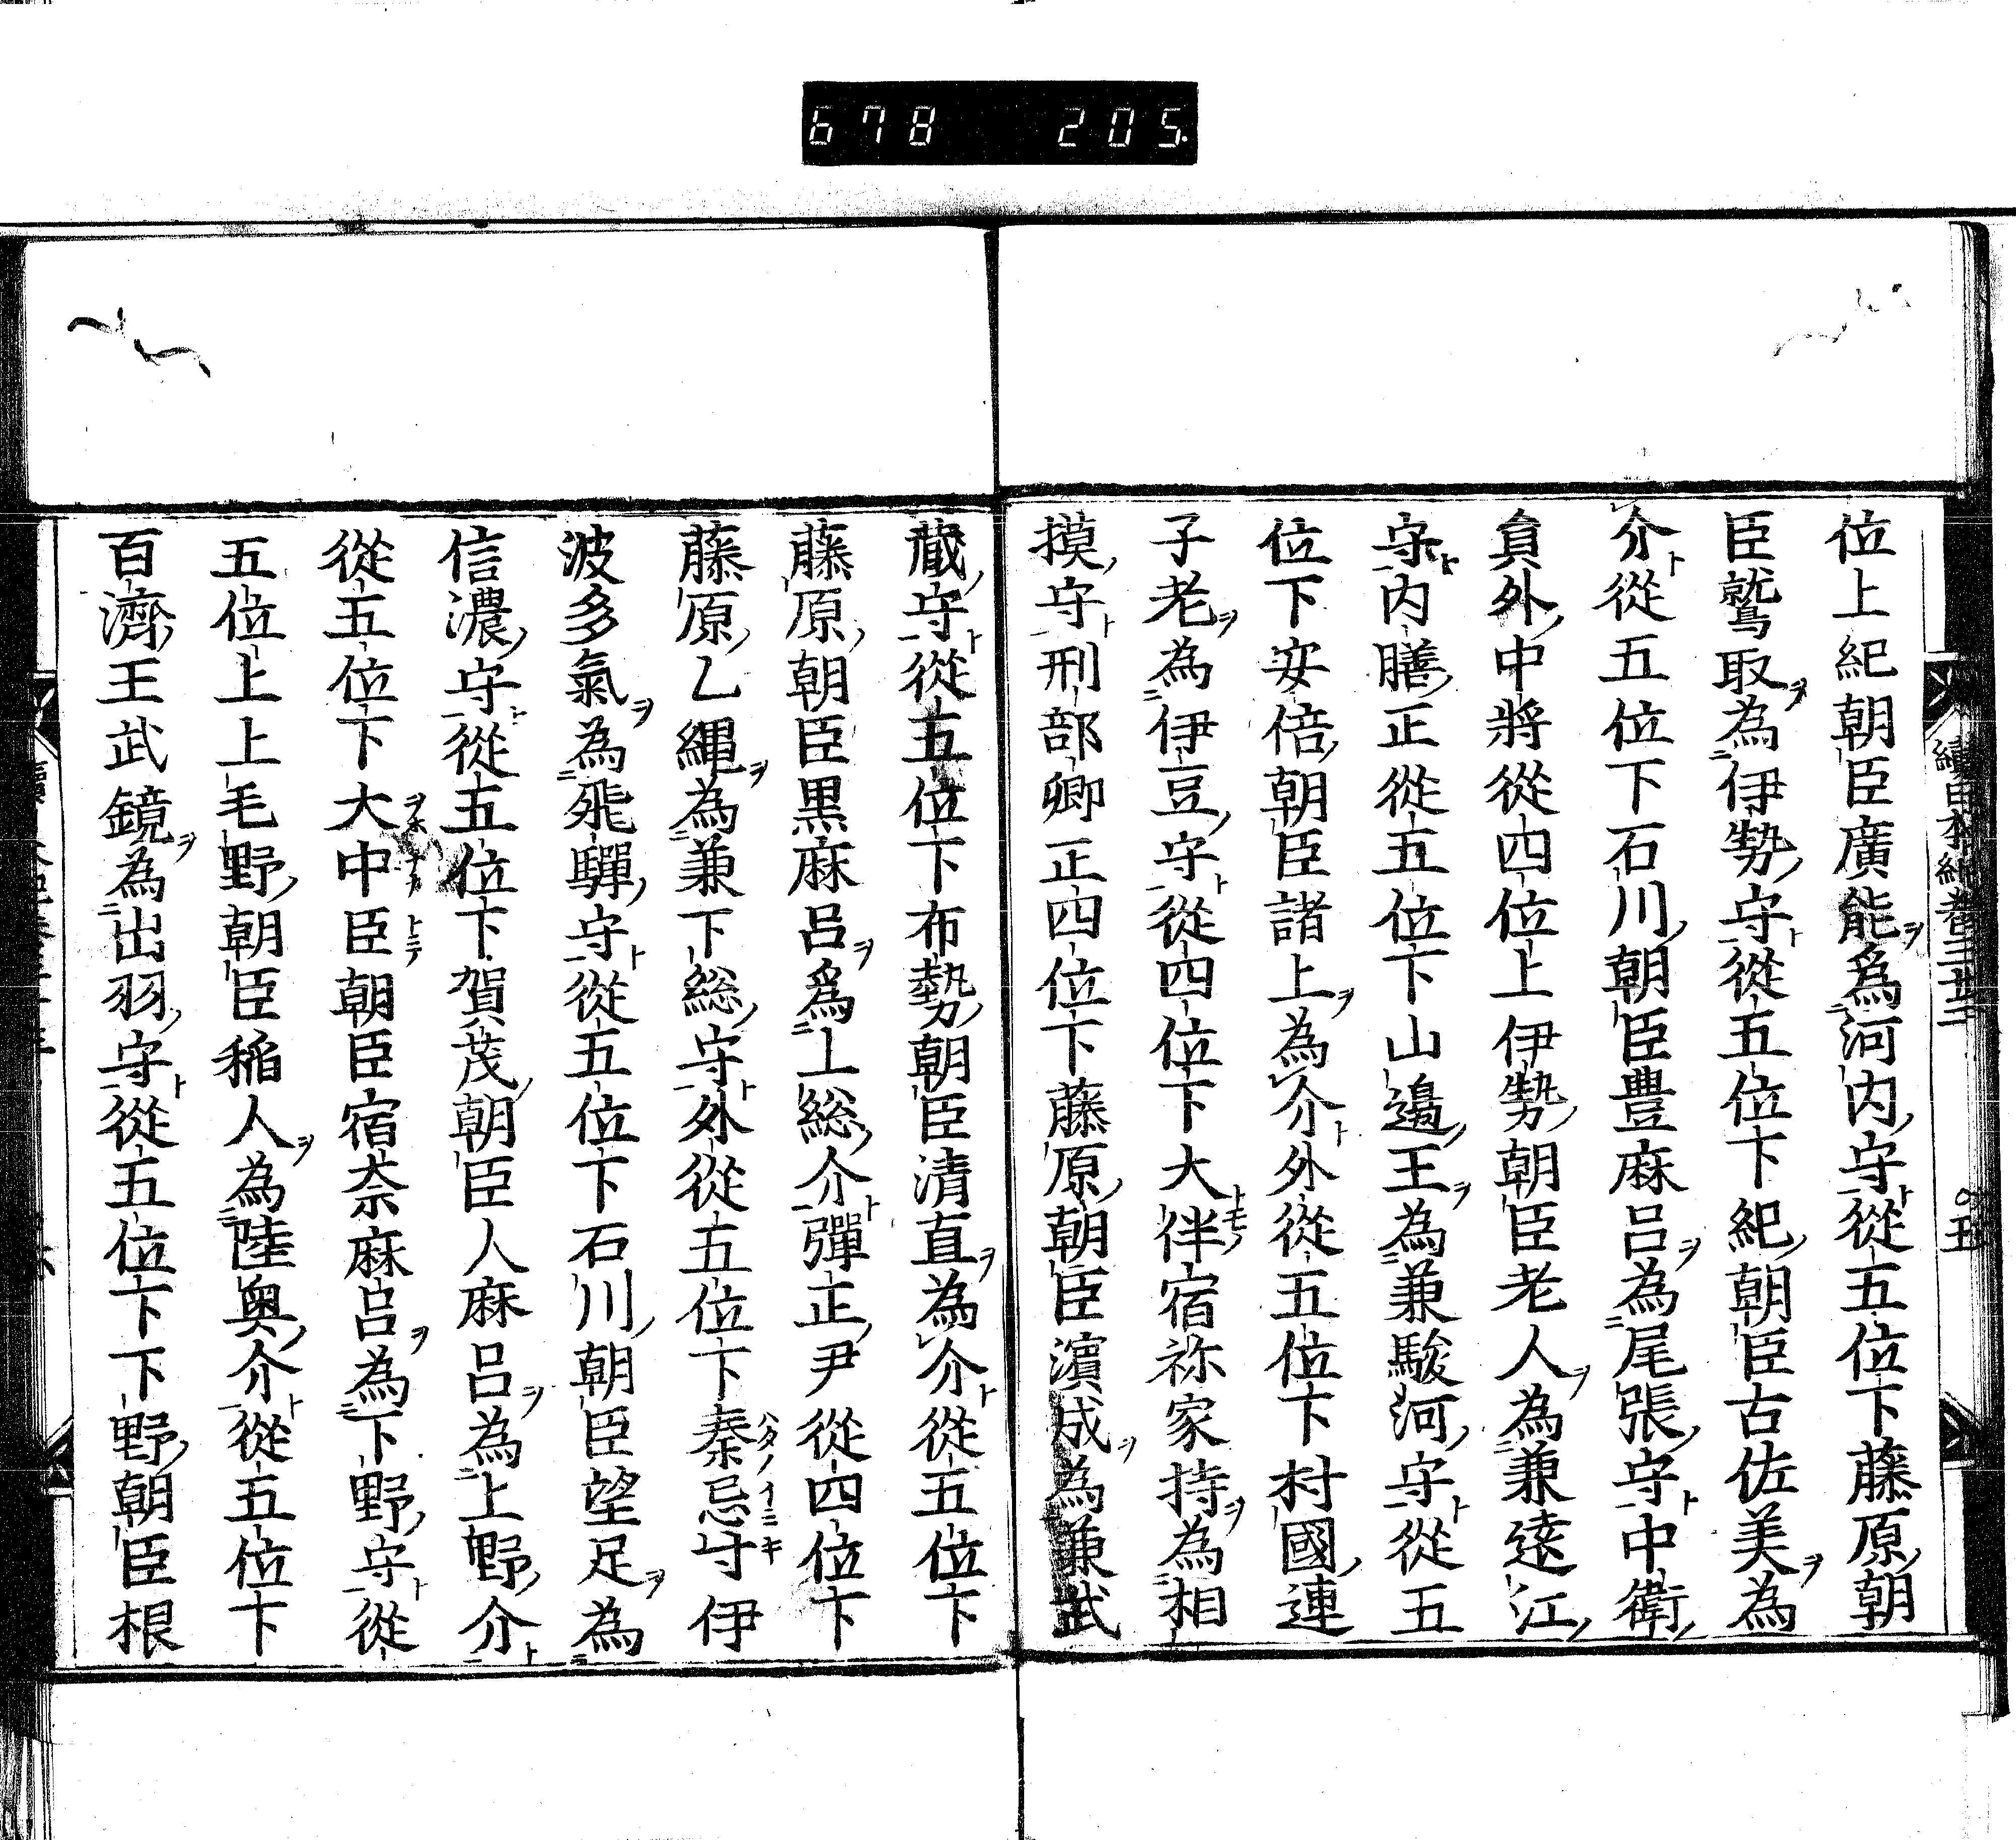 678 205
位上紀朝臣廣能為河内守從五位下藤原朝
臣鷲取為伊勢守從五位下紀朝臣古佐美為
介從五位下石川朝臣豊麻呂為尾張守中衛
員外中將從四位上伊勢朝臣老人為兼遠江
守内膳正從五位下山邊王為兼駿河守從五
位下安倍朝臣諸上為介外從五位下村國連
子老為伊豆守從四位下大伴宿祢家持為相
摸守刑部卿正四位下藤原朝臣濵成為兼武
藏守從五位下布勢朝臣清直為介從五位下
藤原朝臣黒麻呂爲上総介彈正尹從四位下
藤原乙縄為兼下総守外從五位下秦忌寸伊
波多氣為飛驒守從五位下石川朝臣望足為
信濃守從五位下賀茂朝臣人麻呂為上野介
從五位下大中臣朝臣宿奈麻呂為下野守從
五位上上毛野朝臣稲人為陸奥介從五位下
百濟王武鏡為出羽守從五位下下野朝臣根